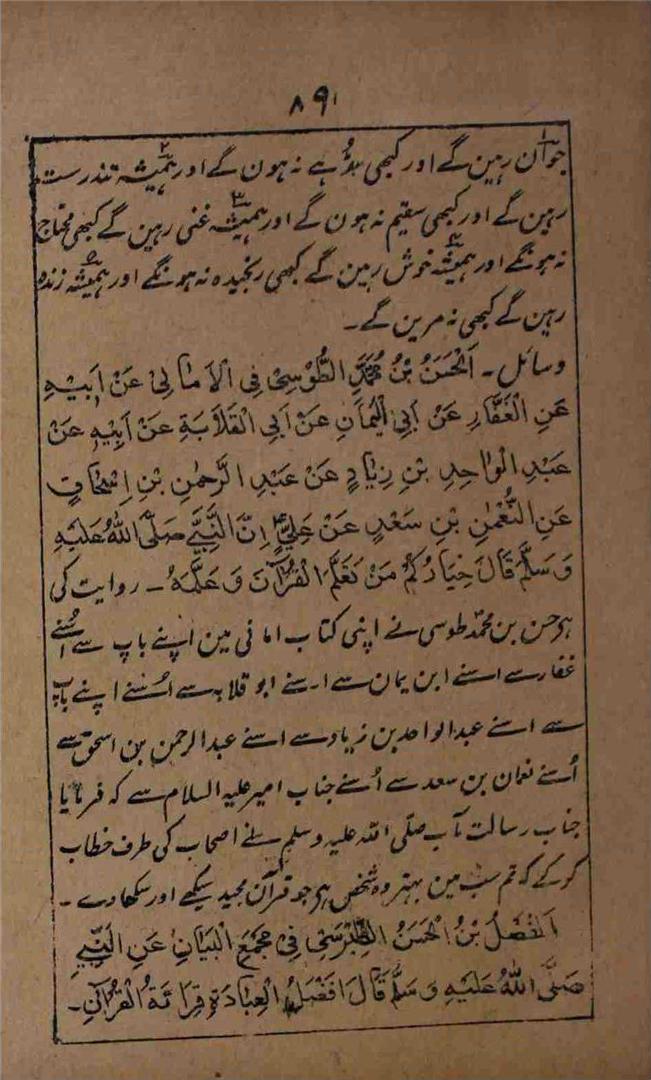 ۸۹
جوان رہین گے اور کبھی بوڑہے نہ ہون گے اور ہمیشہ تندرست
رہین گے اور کبھی سقیم نہ ہون گے اور ہمیشہ غنی رہین گے کبھی محتاج
نہ ہونگے اور ہمیشہ خوش رہین گے کبھی رنجیدہ نہ ہونگے اور ہمیشہ زندہ
رہین گے کبھی نہ مرین گے۔
وسائل۔ اَلْحَسَنُ بْنُ مُحَمَّدِ الطُّوْسِیْ فِی الْاَمَالِیْ عَنْ اَبِیْہِ
عَنِ الْغَفَّارِ عَنْ اَبِی الْیَمَانِ عَنْ اَبِی الْقَلَابَۃِ عَنْ اَبِیْہِ عَنْ
عَبْدِ الْوَاحِدِ بْنِ زِیَادٍ عَنْ عَبْدِ الرَّحْمٰنِ بْنِ اِسْحَاقٍ
عَنِ النُّعْمٰنِ بْنِ سَعْدٍ عَنْ عَلِیٍّ اِنَّ النَّبِیَّ صَلَّی اللّٰہُ عَلَیْہِ
وَسَلَّمَ قَالَ خِیَارُکُمْ مَنْ تَعَلَّمَ الْقُرْآنَ وَعَلَّمَہُ۔ روایت کی
ہے حسن بن محمد طوسی نے اپنی کتاب امانی مین اپنے باپ سے اُسنے
غفار سے اسنے ابن یمان سے اسنے ابو قلابہ سے اُسنے اپنے باپ
سے اسنے عبدالواحد بن زیاد سے اسنے عبدالرحمن بن اسحق سے
اُسنے نعمان بن سعد سے اُسنے جناب امیر علیہ السلام سے کہ فرمایا
جناب رسالت مآب صلی اللہ علیہ وسلم نے اصحاب کی طرف خطاب
کر کے کہ تم سب مین بہتر وہ شخص ہے جو قرآن مجید سیکھے اور سکھاوے۔
اَلْفَضْلُ بْنُ الْحَسَنُ الطَّبْرَسِیْ فِیْ مَجْمَعِ الْبَیَانِ عَنِ النَّبِیِّ
صَلَّی اللّٰہُ عَلَیْہِ وَسَلَّمَ قَالَ اَفْضَلُ الْعِبَادَۃِ قِرَائَۃُ الْقُرْآنِ۔